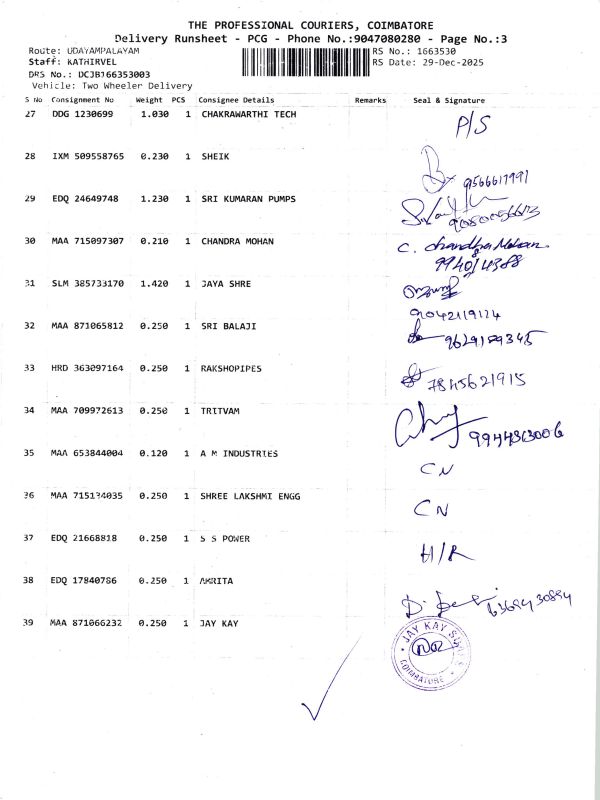 THE PROFESSIONAL COURIERS, COIMBATORE
Delivery Runsheet - PCG - Phone No.:9047080280 - Page No.:3
Route: UDAYAMPALAYAM RS No.: 1663530
Staff: KATHIRVEL RS Date: 29-Dec-2025
DRS No.: DCJB166353003
Vehicle: Two Wheeler Delivery
S No Consignment No Weight PCS Consignee Details Remarks Seal & Signature
27 DDG 1230699 1.030 1 CHAKRAWARTHI TECH P/S
28 IXM 509558765 0.230 1 SHEIK
9566617991
29 EDQ 24649748 1.230 1 SRI KUMARAN PUMPS
30 MAA 715097307 0.210 1 CHANDRA MOHAN C. chandra Mohan
31 SLM 385733170 1.420 1 JAYA SHRE
32 MAA 871065812 0.250 1 SRI BALAJI
33 HRD 363097164 0.250 1 RAKSHOPIPES
7845621915
34 MAA 709972613 0.250 1 TRITVAM
35 MAA 653844004 0.120 1 A M INDUSTRIES CN
36 MAA 715134035 0.250 1 SHREE LAKSHMI ENGG CN
37 EDQ 21668818 0.250 1 S S POWER H/R
38 EDQ 17840786 0.250 1 AMRITA
39 MAA 871066232 0.250 1 JAY KAY
JAY KAY
COIMBATORE